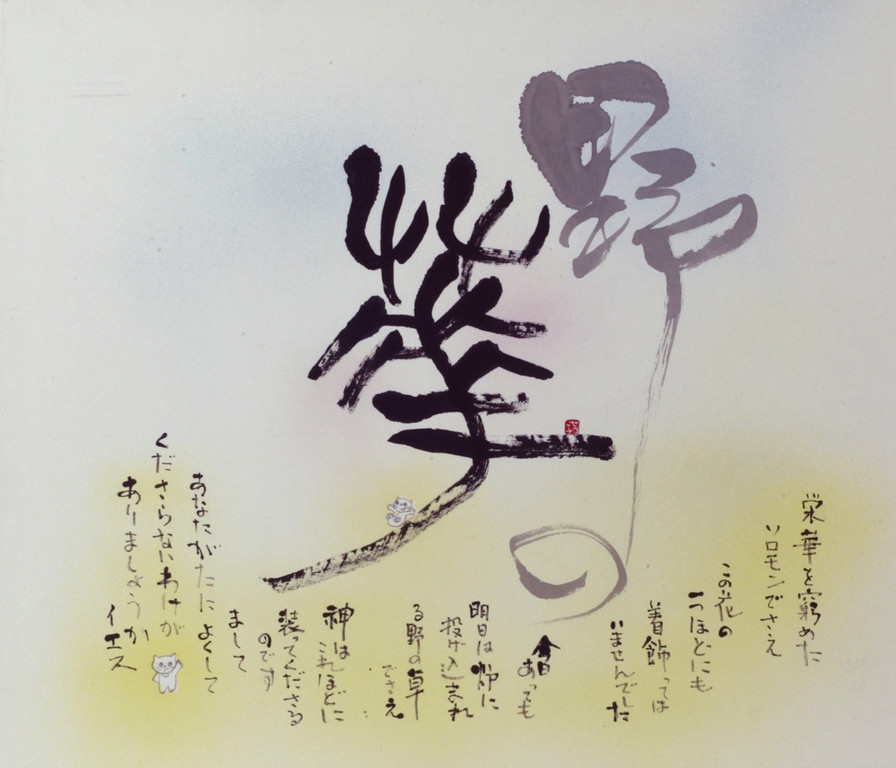 野の華
栄華を窮めた
ソロモンでさえ
この花の
一つほどにも
着飾っては
いませんでした
今日あっても
明日は炉に
投げ込まれ
る野の草
でさえ
神は
これほどに
装ってくださる
のです
まして
あなたがたによくして
くださらないわけが
ありましょうか
イエス